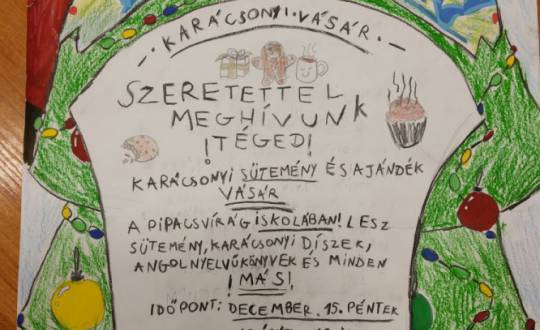 KARÁCSONYI VÁSÁR
SZERETETTEL
MEGHÍVUNK
!TÉGED!
KARÁCSONYI SÜTEMÉNY ÉS AJÁNDÉK
VÁSÁR
A PIPACSVIRÁG ISKOLÁBAN! LESZ
SÜTEMÉNY, KARÁCSONYI DÍSZEK,
ANGOLNYELVŰKÖNYVEK ÉS MINDEN
! MÁS!
IDŐPONT: DECEMBER. 15. PÉNTEK